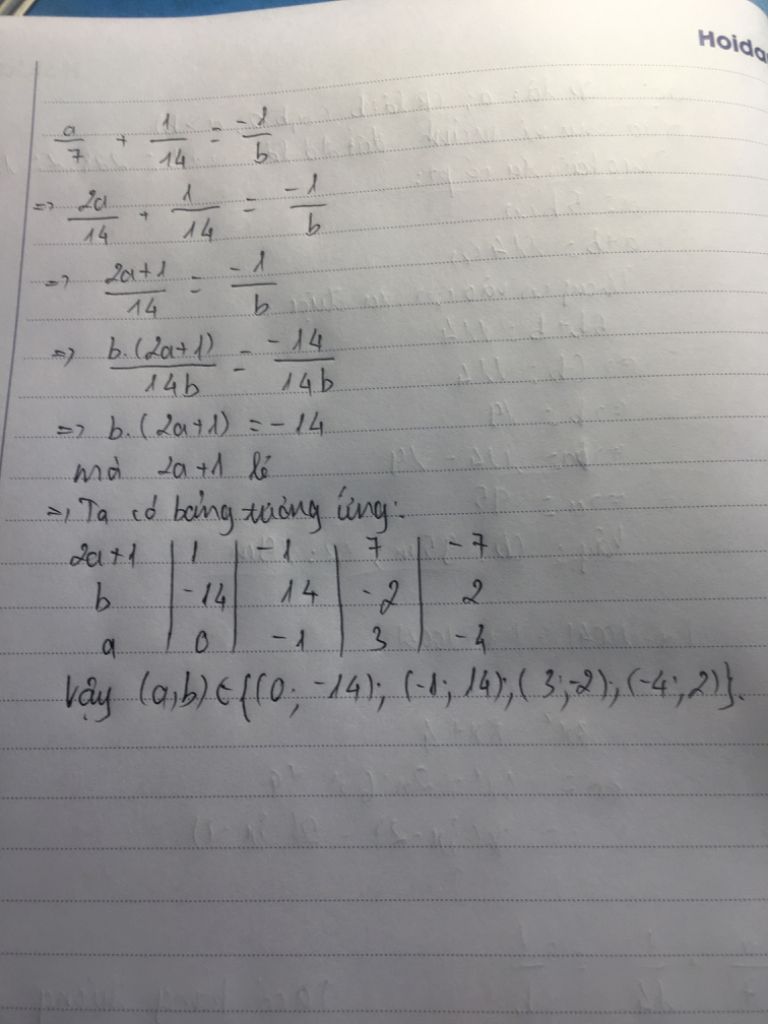 Hoida
a/7 + 1/14 = -1/b
=> 2a/14 + 1/14 = -1/b
=> 2a+1/14 = -1/b
=> b.(2a+1)/14b = -14/14b
=> b.(2a+1) = -14
mà 2a+1 lẻ
=> Ta có bảng tương ứng:
2a+1 | 1 | -1 | 7 | -7
b | -14 | 14 | -2 | 2
a | 0 | -1 | 3 | -4
Vậy (a,b) ∈ {(0; -14); (-1; 14); (3;-2); (-4; 2)}.